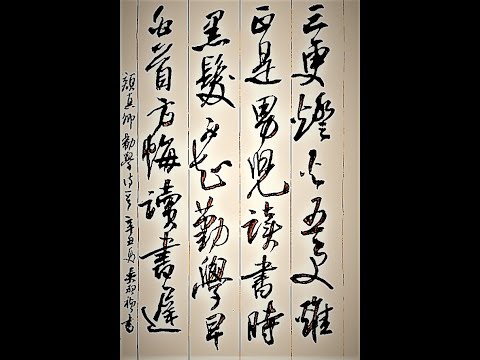 三更燈火五更雞
正是男兒讀書時
黑髮不知勤學早
白首方悔讀書遲
顏真卿勸學詩一首 辛丑